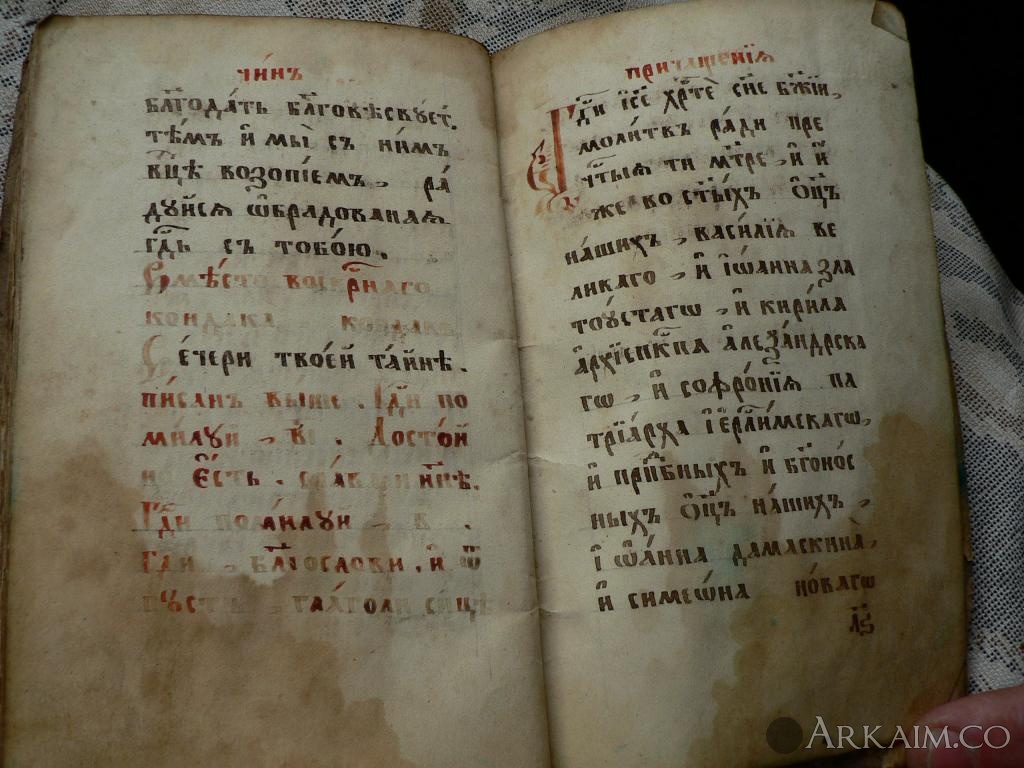 чи́нъ
бл҃года́ть бл҃говѣсвꙋет.
тѣ́мъ и҆ мы̀ съ ни́мъ
вц҃ѣ возопїе́мъ, ра́
дꙋйсѧ ѡ҆брадованаѧ
гд҇ь съ тобо́ю.
Вмѣ́сто воскр҇наго
кондака кондакъ
Вечери твоеѝ та́йнѣ.
писанъ выше. Гд҇и по
ми́лꙋй, в҃і. Досто́й
и є҆сть. сла́ва и нн҃ѣ.
Гд҇и поми́лꙋй, в҃.
Гд҇и бл҇гослови. и҆ ѿ
пꙋстъ, глаголи си́це
причаще́нїѧ
Гд҇и і҆с҃е хр҇те сн҃е бж҃їй,
моли́твъ ра́ди пре
чт҇ыѧ ти мт҃ре, и҆ и҆
же во ст҃ы́хъ ѻ҆ц҃ъ
на́шихъ, васи́лїѧ ве
ликаго, и҆ і҆ѡа́нна зла
тоꙋ́стагѡ, и҆ кири́ла
а҆рхїепкⷭ҇па а҆леѯа́ндрска
гѡ, и҆ софро́нїѧ па
трїа́рха і҆ерⷭ҇ли́мскагѡ,
и҆ прпⷣбныхъ и҆ бг҃оно́с
ныхъ ѻ҆ц҃ъ на́шихъ,
і҆ѡа́нна дамаски́на,
и҆ симеѡ́на но́вагѡ
л҃ѕ
ARKAIM.CO